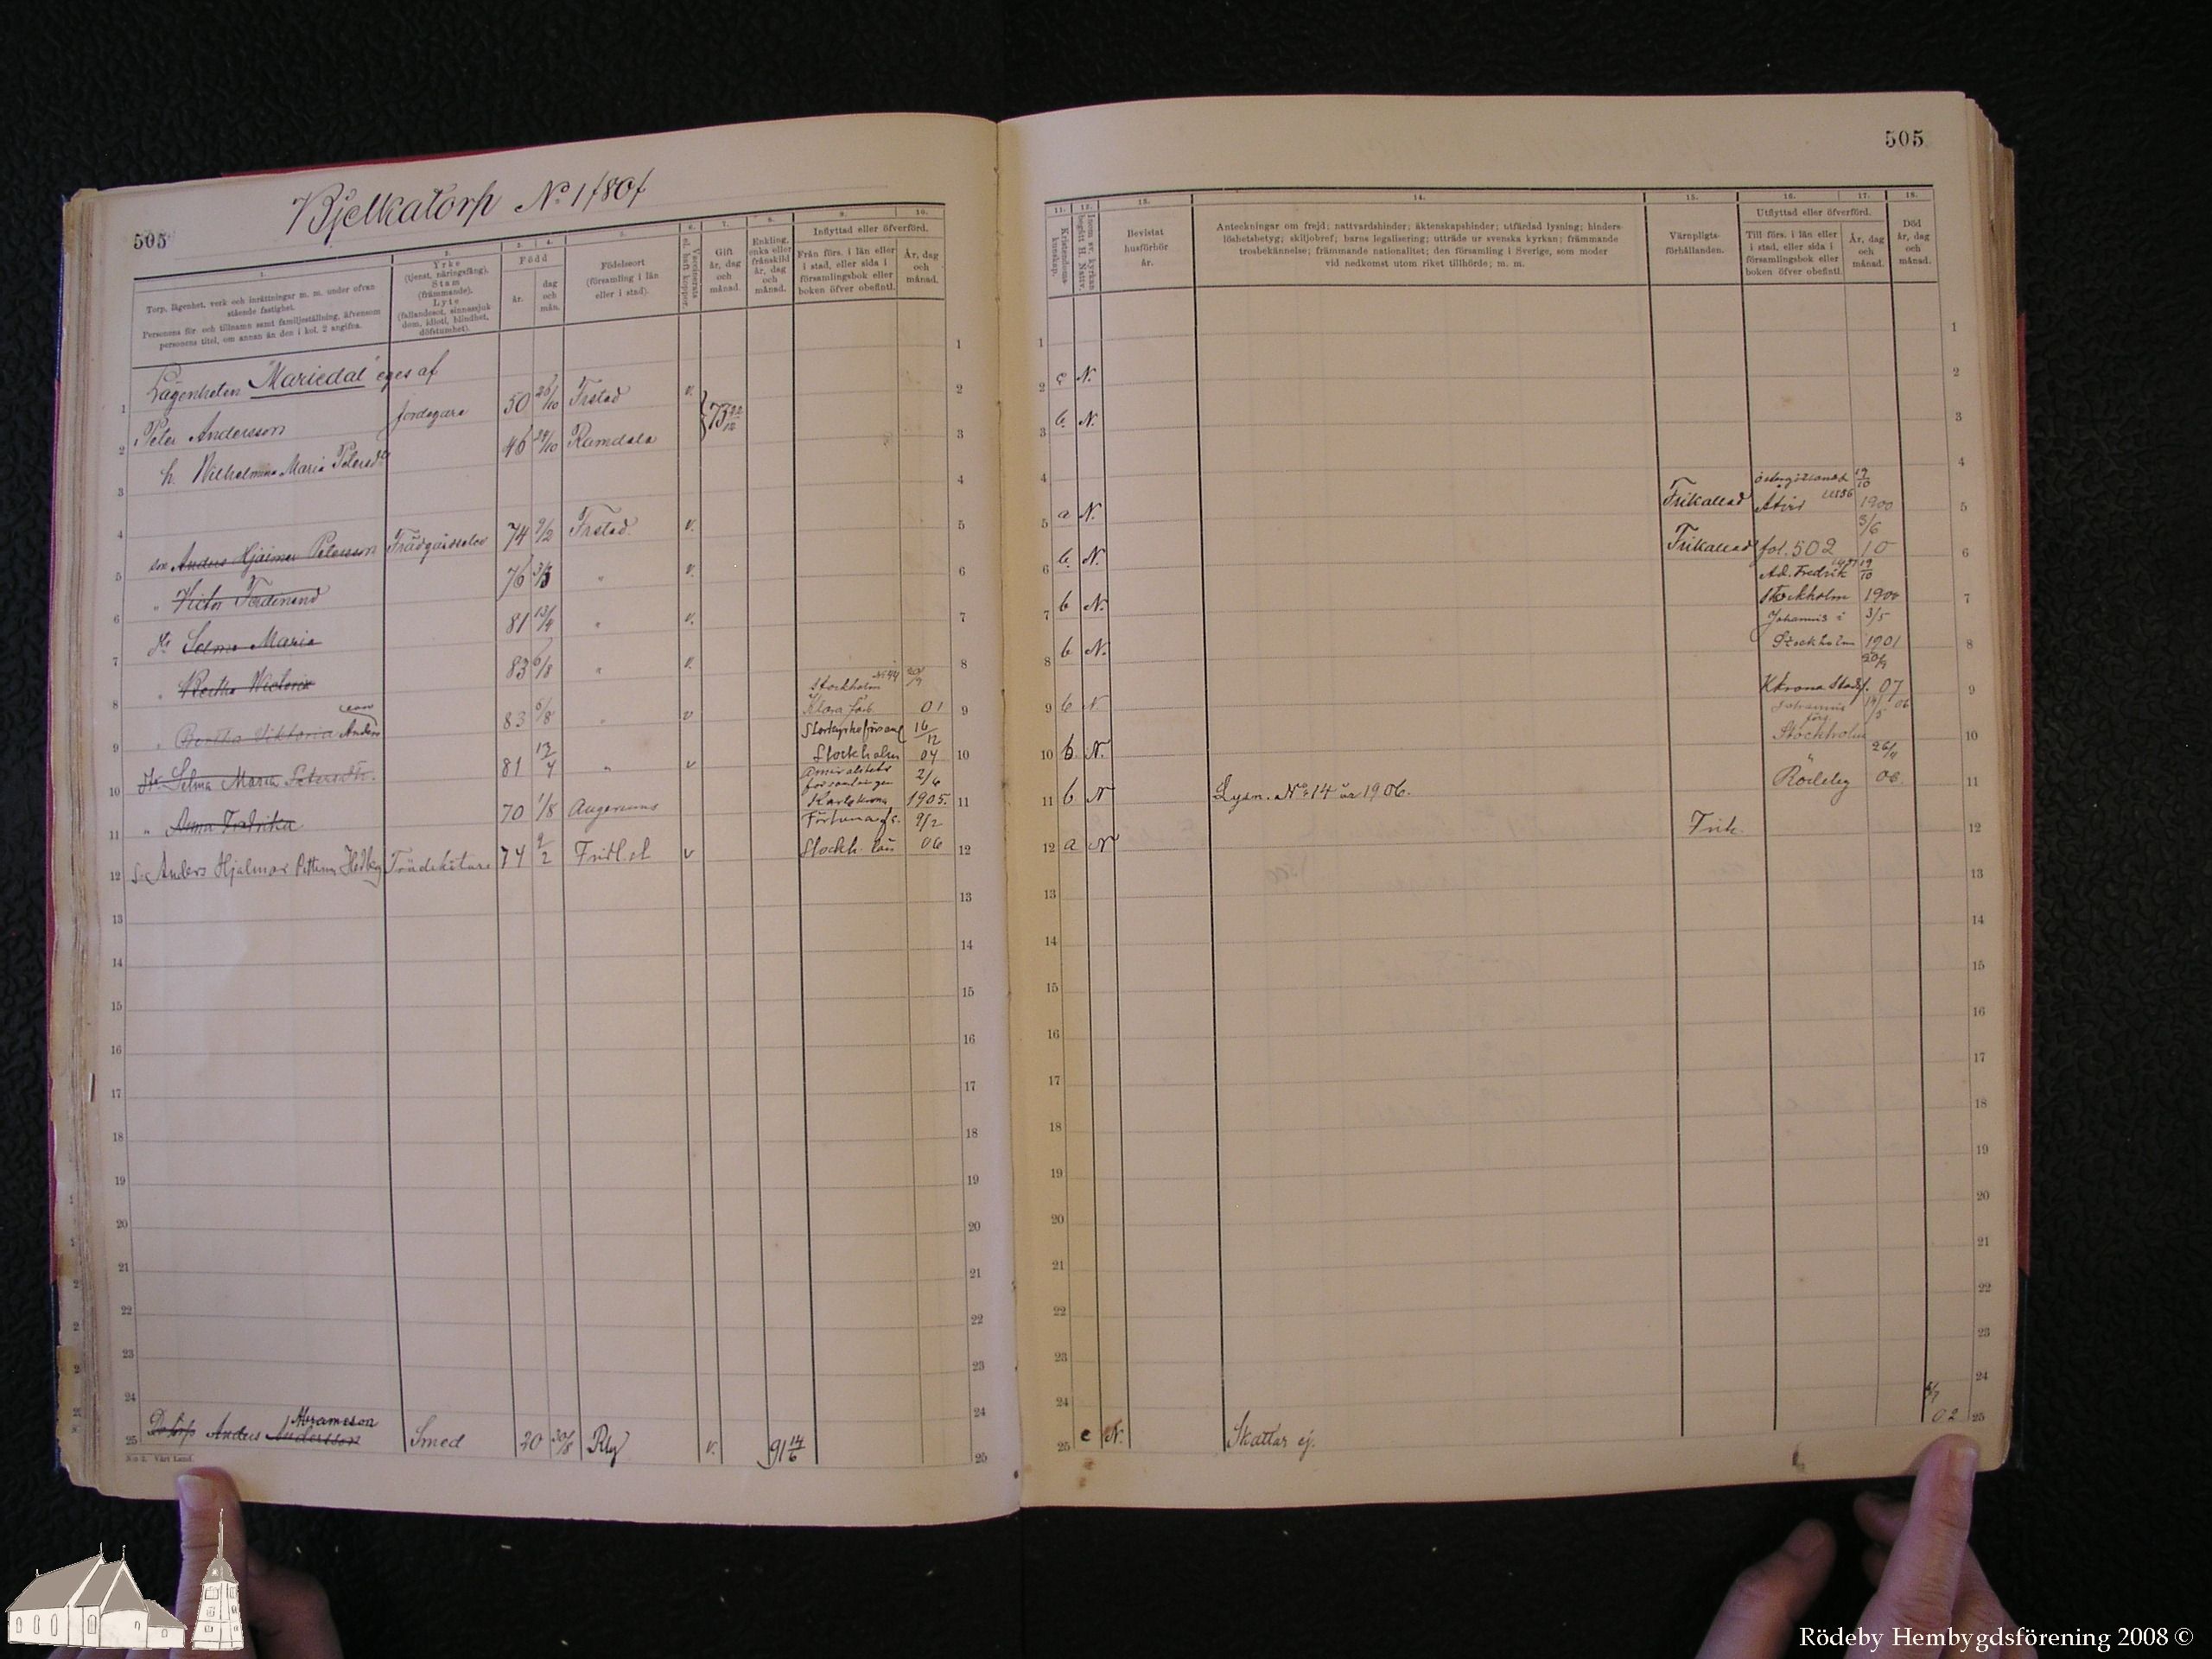 Bjelkatorp No 1
505
1.
Torp, lägenhet, verk och inrättningar m. m. under ofvan
stående fastighet.
Personens för- och tillnamn samt familjeställning, äfvensom
personens titel, om annan än den i kol. 2 angifna.
2.
Yrke
(tjenst, näringsfång).
Stam
(främmande).
Lyte
(fallandesot, sinnessjuk
dom, idioti, blindhet,
döfstumhet).
3. 4.
Född
år.
dag
och
mån.
5.
Födelseort
(församling i län
eller i stad).
6.
7.
Gift
år, dag
och
månad.
8.
Enkling,
enka eller
frånskild
år, dag
och
månad.
9. 10.
Inflyttad eller öfverförd.
Från förs. i län eller
i stad, eller sida i
församlingsbok eller
boken öfver obefintl.
År, dag
och
månad.
Lägenheten Mariedal eges af
Peter Andersson jordegare 50 Frstad v.
h. Wilhelmina Maria Petersdr 46 29/10 Ramdala
son Anders Hjalmar Petersson Trädgårdselev 74 9/2 Frstad v.
" Victor Ferdinand 76 " v.
Dr Selma Maria 81 13/4 " v.
" Bertha Victoria 83 6/8 " v.
Stockholm
Klara förs. 01
" Bertha Viktoria 83 6/8 " v
16/12
Stockholm 04
Dr Selma Maria Petersdtr. 81 13/4 " v
Amiralitets
församlingen 2/6
Karlskrona 1905.
" Anna Fredrika 70 1/8 Augerums
9/2
Stockh. län 06
Anders Hjalmar 74 9/2 v
Abrameson
Anders Andersson Smed 20 30/8 Rby v. 91 14/6
No 2. Vårt Land.
505
11.
Kristendoms-
kunskap.
12.
13.
Bevistat
husförhör
år.
14.
Anteckningar om frejd; nattvardshinder; äktenskapshinder; utfärdad lysning; hinders
löshetsbetyg; skiljobref; barns legalisering; utträde ur svenska kyrkan; främmande
trosbekännelse; främmande nationalitet; den församling i Sverige, som moder
vid nedkomst utom riket tillhörde; m. m.
15.
Värnpligts-
förhållanden.
16. 17.
Utflyttad eller öfverförd.
Till förs. i län eller
i stad, eller sida i
församlingsbok eller
boken öfver obefintl.
År, dag
och
månad.
18.
Död
år, dag
och
månad.
N.
N.
a N. Frikallad Åtvid 19/10 1900
N. Frikallad fol. 502 3/6 10
b N. Ad. Fredrik 19/10
Stockholm 1900
b N. Johannis i 3/5
Stockholm 1901
b N Kkrona Stadsf. 07
Johannis
förs.
b N. Stockholm
b N Lysn. No 14 år 1906. Rödeby 06
a N Frik.
c N. Skattar ej. 02
Rödeby Hembygdsförening 2008 ©